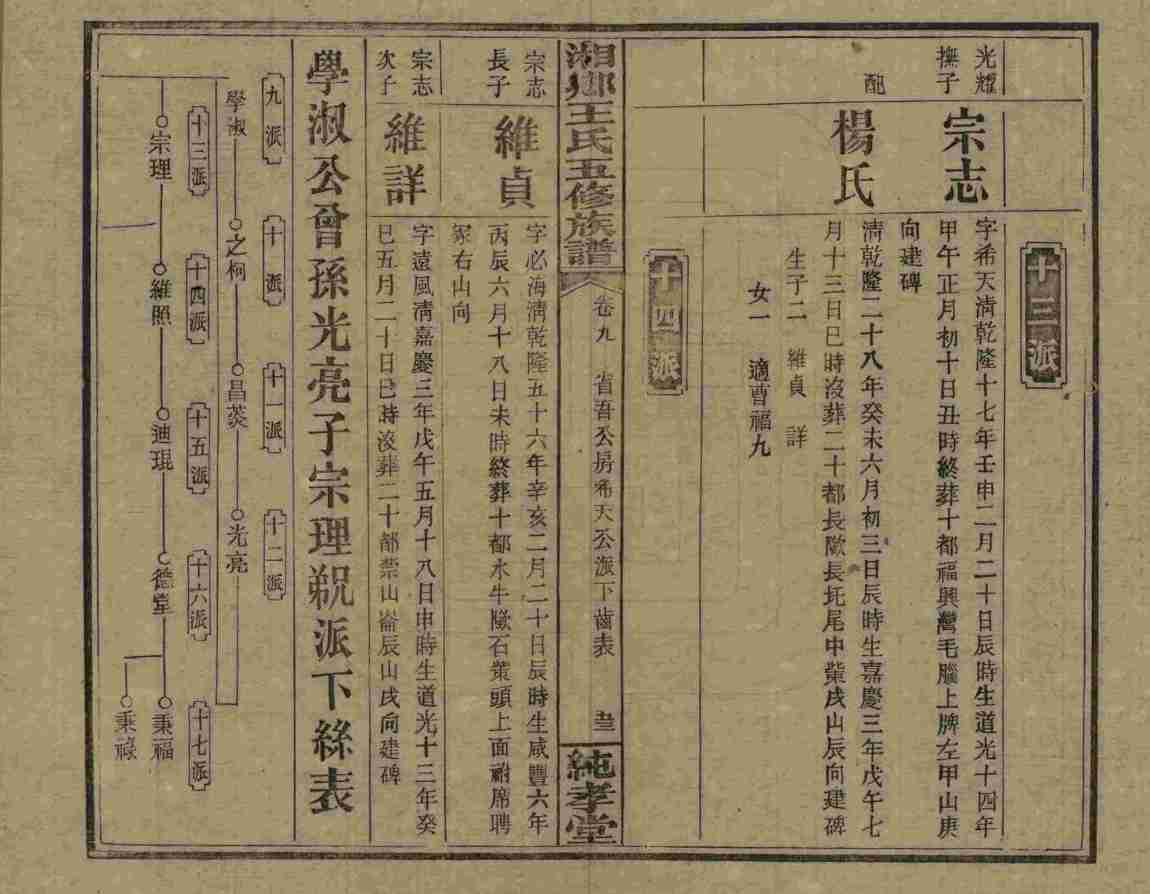 十三派
光耀
撫子
宗志
字希天清乾隆十七年壬申二月二十日辰時生道光十四年
甲午正月初十日丑時終葬十都福興灣毛腦上牌左甲山庚
向建碑
配
楊氏
清乾隆二十八年癸未六月初三日辰時生嘉慶三年戊午七
月十三日巳時沒葬二十都長歐長坵尾中嘴戌山辰向建碑
生子二 維貞 詳
女一 適曹福九
十四派
湘鄉王氏五修族譜
卷九 省吾公房希天公派下齒表
純孝堂
宗志
長子
維貞
字必海清乾隆五十六年辛亥二月二十日辰時生咸豐六年
丙辰六月十八日未時終葬十都水牛歐石策頭上面祔席聘
冢右山向
宗志
次子
維詳
字遠風清嘉慶三年戊午五月十八日申時生道光十三年癸
巳五月二十日巳時沒葬二十都禁山崙辰山戌向建碑
學淑公曾孫光亮子宗理繼派下絲表
九派
十派
十一派
十二派
學淑
之柯
昌葵
光亮
十三派
十四派
十五派
十六派
十七派
宗理
維照
迪琨
德堂
秉福
秉祿